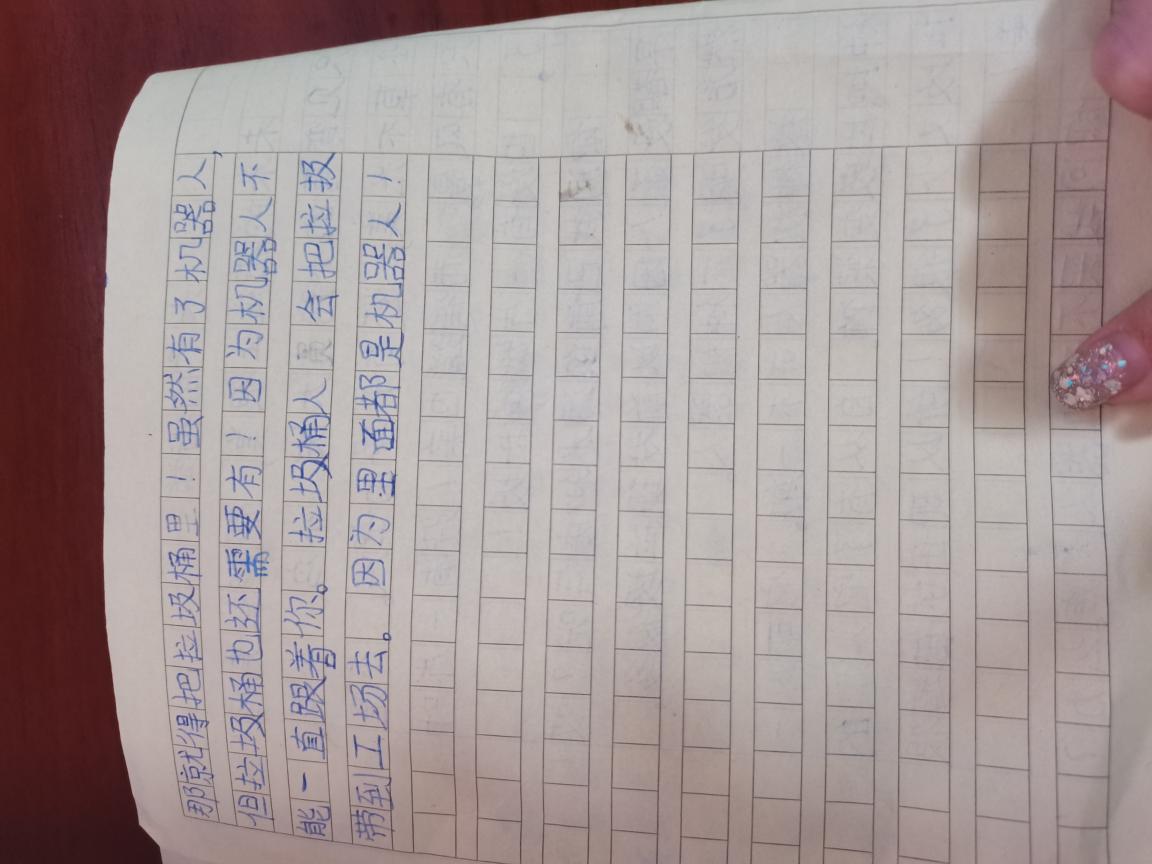 那就得把拉圾桶里！虽然有了机器人，
但拉圾桶也还需要有！因为机器人不
能一直跟着你。拉圾桶人员会把拉圾
带到工场去。因为里面都是机器人！